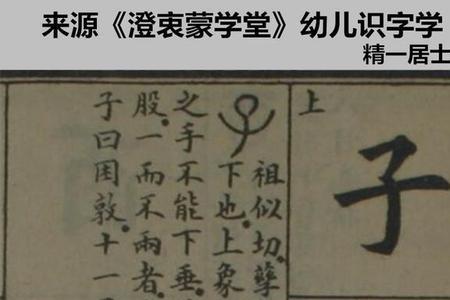 来源《澄衷蒙学堂》幼儿识字学
精一居士
上
子
祖似切。孳
下也。上象
之手不能下垂。
股。一而不兩者。
子曰困敦。十一